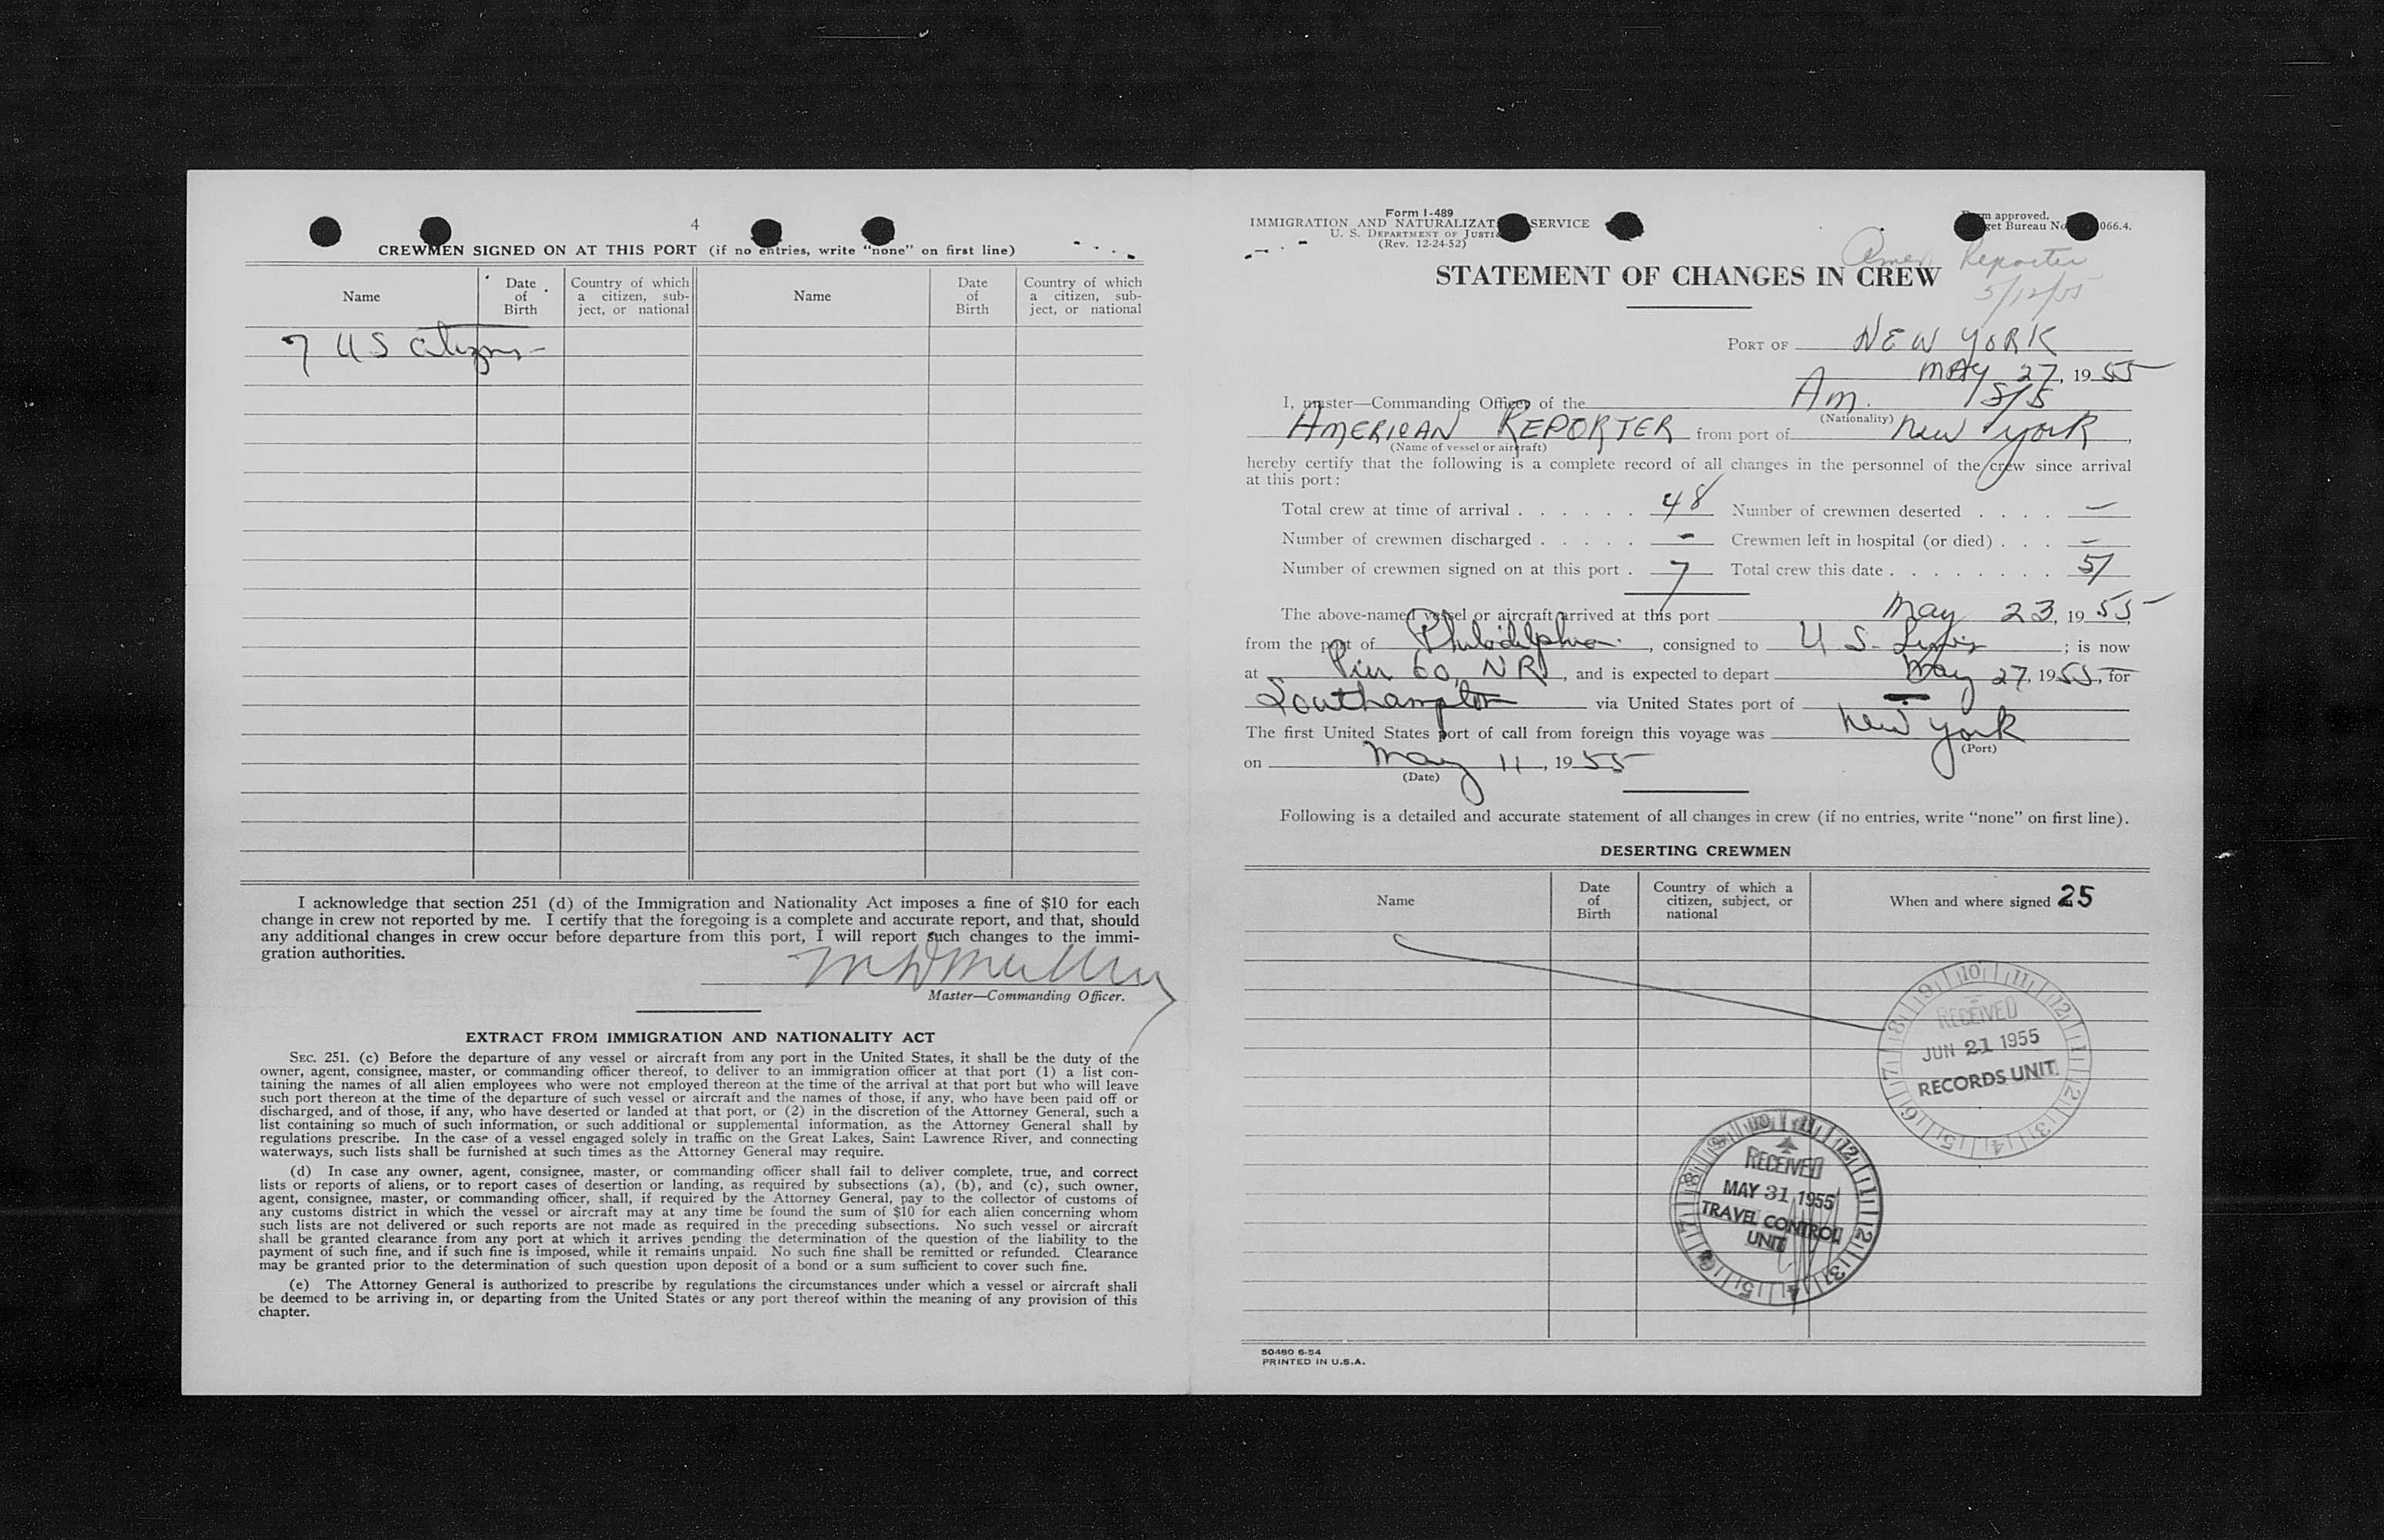 4
CREWMEN SIGNED ON AT THIS PORT (if no entries, write "none" on first line)
Name
Date of Birth
Country of which a citizen, subject, or national
Name
Date of Birth
Country of which a citizen, subject, or national
7 US citizens
I acknowledge that section 251 (d) of the Immigration and Nationality Act imposes a fine of $10 for each
change in crew not reported by me. I certify that the foregoing is a complete and accurate report, and that, should
any additional changes in crew occur before departure from this port, I will report such changes to the immi-
gration authorities.
Master—Commanding Officer.
EXTRACT FROM IMMIGRATION AND NATIONALITY ACT
SEC. 251. (c) Before the departure of any vessel or aircraft from any port in the United States, it shall be the duty of the
owner, agent, consignee, master, or commanding officer thereof, to deliver to an immigration officer at that port (1) a list con-
taining the names of all alien employees who were not employed thereon at the time of the arrival at that port but who will leave
such port thereon at the time of the departure of such vessel or aircraft and the names of those, if any, who have been paid off or
discharged, and of those, if any, who have deserted or landed at that port, or (2) in the discretion of the Attorney General, such a
list containing so much of such information, or such additional or supplemental information, as the Attorney General shall by
regulations prescribe. In the case of a vessel engaged solely in traffic on the Great Lakes, Saint Lawrence River, and connecting
waterways, such lists shall be furnished at such times as the Attorney General may require.
(d) In case any owner, agent, consignee, master, or commanding officer shall fail to deliver complete, true, and correct
lists or reports of aliens, or to report cases of desertion or landing, as required by subsections (a), (b), and (c), such owner,
agent, consignee, master, or commanding officer, shall, if required by the Attorney General, pay to the collector of customs of
any customs district in which the vessel or aircraft may at any time be found the sum of $10 for each alien concerning whom
such lists are not delivered or such reports are not made as required in the preceding subsections. No such vessel or aircraft
shall be granted clearance from any port at which it arrives pending the determination of the question of the liability to the
payment of such fine, and if such fine is imposed, while it remains unpaid. No such fine shall be remitted or refunded. Clearance
may be granted prior to the determination of such question upon deposit of a bond or a sum sufficient to cover such fine.
(e) The Attorney General is authorized to prescribe by regulations the circumstances under which a vessel or aircraft shall
be deemed to be arriving in, or departing from the United States or any port thereof within the meaning of any provision of this
chapter.
Form I-489
IMMIGRATION AND NATURALIZAT SERVICE
U. S. DEPARTMENT OF JUSTI
(Rev. 12-24-52)
m approved.
get Bureau No 066.4.
Amer Reporter
5/12/55
STATEMENT OF CHANGES IN CREW
PORT OF NEW YORK
MAY 27, 1955
I, master—Commanding Officer of the Am. S/S
(Nationality)
AMERICAN REPORTER from port of New York,
(Name of vessel or aircraft)
hereby certify that the following is a complete record of all changes in the personnel of the crew since arrival
at this port:
Total crew at time of arrival . . . . . . 48 Number of crewmen deserted . . . . —
Number of crewmen discharged . . . . . - Crewmen left in hospital (or died) . . . —
Number of crewmen signed on at this port . 7 Total crew this date . . . . . . . . 51
The above-named vessel or aircraft arrived at this port May 23, 1955,
from the port of Philadelphia, consigned to U S. Lines; is now
at Pier 60, NR, and is expected to depart May 27, 1955, for
Southampton via United States port of —
The first United States port of call from foreign this voyage was New York
(Port)
on May 11, 1955
(Date)
Following is a detailed and accurate statement of all changes in crew (if no entries, write "none" on first line).
DESERTING CREWMEN
Name
Date of Birth
Country of which a citizen, subject, or national
When and where signed 25
RECEIVED
JUN 21 1955
RECORDS UNIT
RECEIVED
MAY 31 1955
TRAVEL CONTROL
UNIT
50480 6-54
PRINTED IN U.S.A.